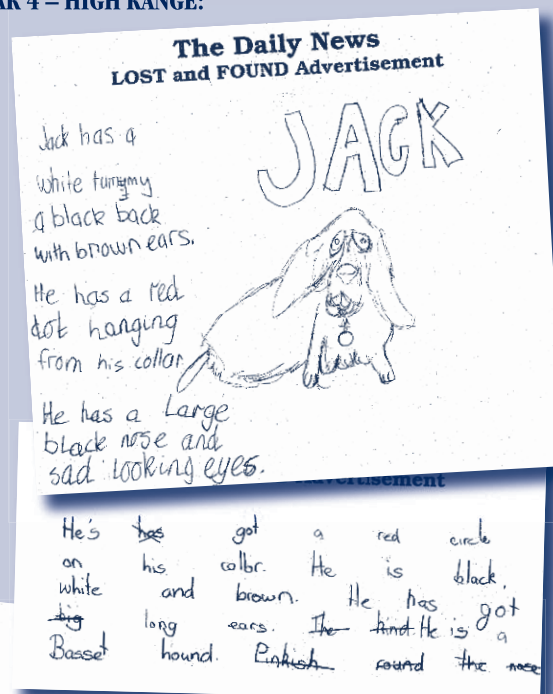 4 – HIGH RANGE:
The Daily News
LOST and FOUND Advertisement
JACK
Jack has a
white tummy
a black back
with brown ears.
He has a red
dot hanging
from his collar
He has a Large
black nose and
sad looking eyes.
ertisement
He's has got a red circle
on his collar. He is black,
white and brown. He has got
big long ears. The kind He is a
Basset hound. Pinkish round the nose